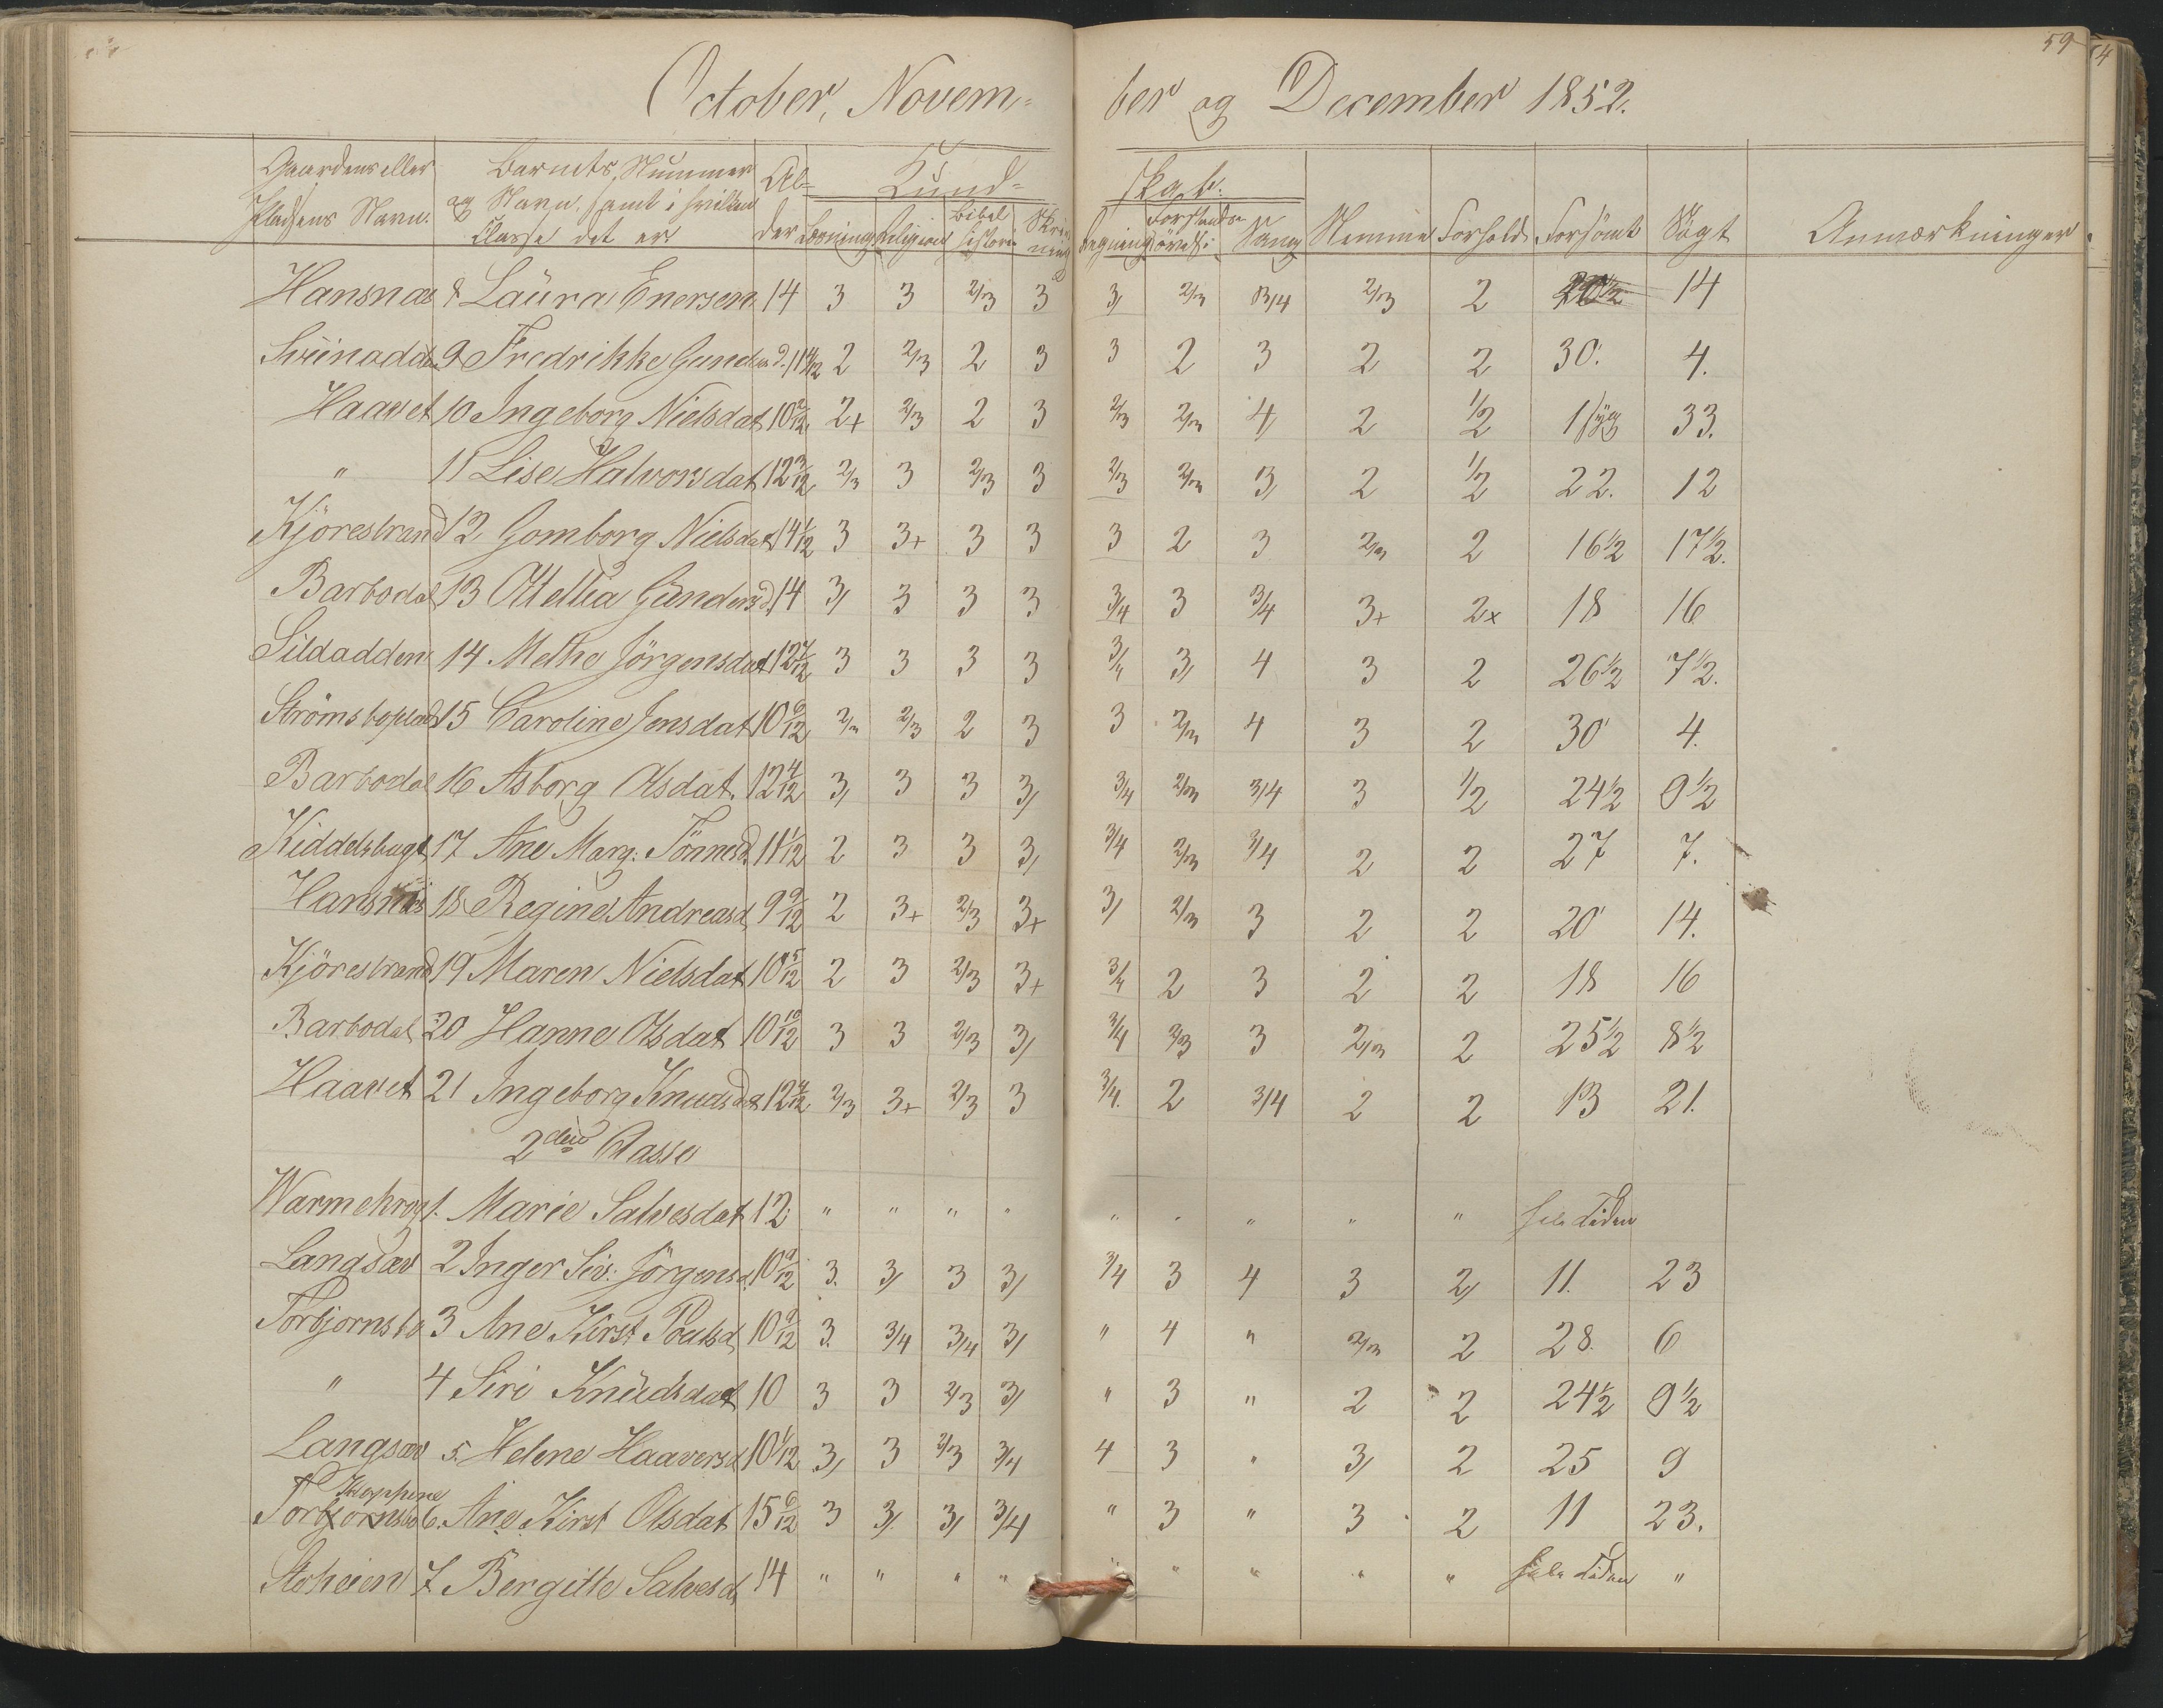 59
October, Novem= ber og December 1852.
Gaardens eller Pladsens Navn. Barnets Nummer og Navn, samt i hvilken Classe det er Alder Kundskab: Læsning Religion Bibelhistorie Skrivning Regning Forstandsövelse Sang Nemme Forhold Forsömt Sögt Anmærkninger
Hansnæs 8 Laüra Enersen 14 3 3 2/3 3 3/ 2/3 3/4 2/3 2 14
Sviinodden 9 Fredrikke Gunders.d. 11 11/12 2 2/3 2 3 3 2 3 2 2 30. 4.
Haavet 10 Ingeborg Nielsdat 10 2/12 2+ 2/3 2 3 2/3 2/3 4/ 2 1/2 1 syg 33.
" 11 Lise Halvorsdat 12 3/12 2/3 3 2/3 3 2/3 2/3 3/ 2 1/2 22. 12
Kjörestrand 12 Gomborg Nielsdat 14 1/12 3 3+ 3 3 3 2 3 2/3 2 16 1/2 17 1/2.
Barbodal 13 Ottellia Günders.d. 14 3/ 3 3 3 3/4 3 3/4 3+ 2x 18 16
Sildodden 14 Methe Jörgensdat 12 7/12 3 3 3 3 3/4 3/ 4 3 2 26 1/2 7 1/2.
Strömsboplad 15 Caroline Jensdat 10 9/12 2/3 2/3 2 3 3 2/3 4 3 2 30 4.
Barbodal 16 Asborg Olsdat. 12 4/12 3/ 3 3 3/ 3/4 2/3 3/4 3 1/2 24 1/2 9 1/2
Kiddelsbugt 17 Ane Marg: Tönnesd. 11 1/12 2 3 3 3/ 3/4 2/3 3/4 2 2 27 7.
Hansnæs 18 Regine Andreasd 9 9/12 2 3+ 2/3 3+ 3/ 2/3 3 2 2 20 14.
Kjörestrand 19 Maren Nielsdat 10 5/12 2 3 2/3 3+ 3/4 2 3 2 2 18 16
Barbodal 20 Hanne Olsdat 10 10/12 3 3 2/3 3/ 3/4 2/3 3 2/3 2 25 1/2 8 1/2
Haavet 21 Ingeborg Knudsdat 12 4/12 2/3 3+ 2/3 3 3/4. 2 3/4 2 2 13 21.
2den Classe
Warmekrog 1. Marie Salvesdat 12 " " " " " " " " " hele Tiden
Langsæv 2 Inger Siv: Jörgensd. 10 9/12 3. 3/ 3 3/ 3/4 3 4 3 2/ 11. 23
Torbjornsbo 3 Ane Kirst Poulsd 10 9/12 3. 3/4 3/4 3/ " 4 " 2/3 2 28. 6
" 4 Siri Knüdsdat 10 3 3 2/3 3/ " 3 " 2 2 24 1/2 9 1/2
Langsæv 5. Helene Haaversd 10 1/12 3/ 3 2/3 3/4 4 3 " 3/ 2 25 9
Torbjornsbo 6. Ane Kirst Olsdat 15 6/12 3 3/ 3/ 3/4 " 3 " 3 2 11 23.
Stoheien 7 Bergitte Salvesd. 14 " " " " " " " " " hele Tiden "